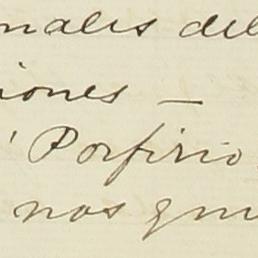 nales del
iones —
Porfirio
nos